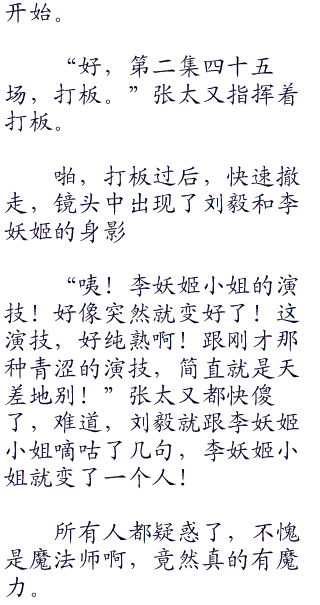 开始。
“好，第二集四十五
场，打板。”张太又指挥着
打板。
啪，打板过后，快速撤
走，镜头中出现了刘毅和李
妖姬的身影
“咦！李妖姬小姐的演
技！好像突然就变好了！这
演技，好纯熟啊！跟刚才那
种青涩的演技，简直就是天
差地别！”张太又都快傻
了，难道，刘毅就跟李妖姬
小姐嘀咕了几句，李妖姬小
姐就变了一个人！
所有人都疑惑了，不愧
是魔法师啊，竟然真的有魔
力。